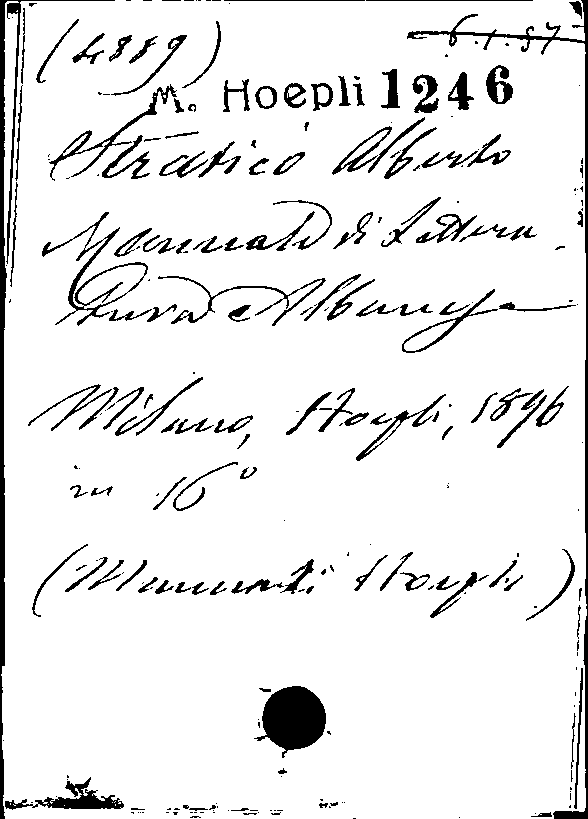 (4889)
6.1.57
M. Hoepli 1246
Straticò Alberto
Manuale di Lettera-
tura Albanese
Milano, Hoepli, 1896
in 16°
(Manuali Hoepli)